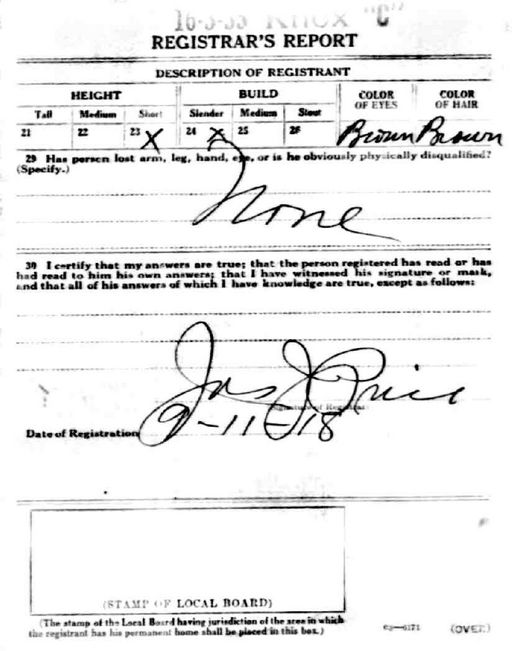 16-3-33 KNOX "C"
REGISTRAR'S REPORT
DESCRIPTION OF REGISTRANT
HEIGHT BUILD COLOR OF EYES COLOR OF HAIR
Tall Medium Short Slender Medium Stout
21 22 23 X 24 X 25 26 Brown Brown
29 Has person lost arm, leg, hand, eye, or is he obviously physically disqualified?
(Specify.)
None
30 I certify that my answers are true; that the person registered has read or has
had read to him his own answers; that I have witnessed his signature or mark,
and that all of his answers of which I have knowledge are true, except as follows:
Jas J Price
Signature of Registrar
Date of Registration 9-11-18
(STAMP OF LOCAL BOARD)
(The stamp of the Local Board having jurisdiction of the area in which
the registrant has his permanent home shall be placed in this box.)
03—6171 (OVER)